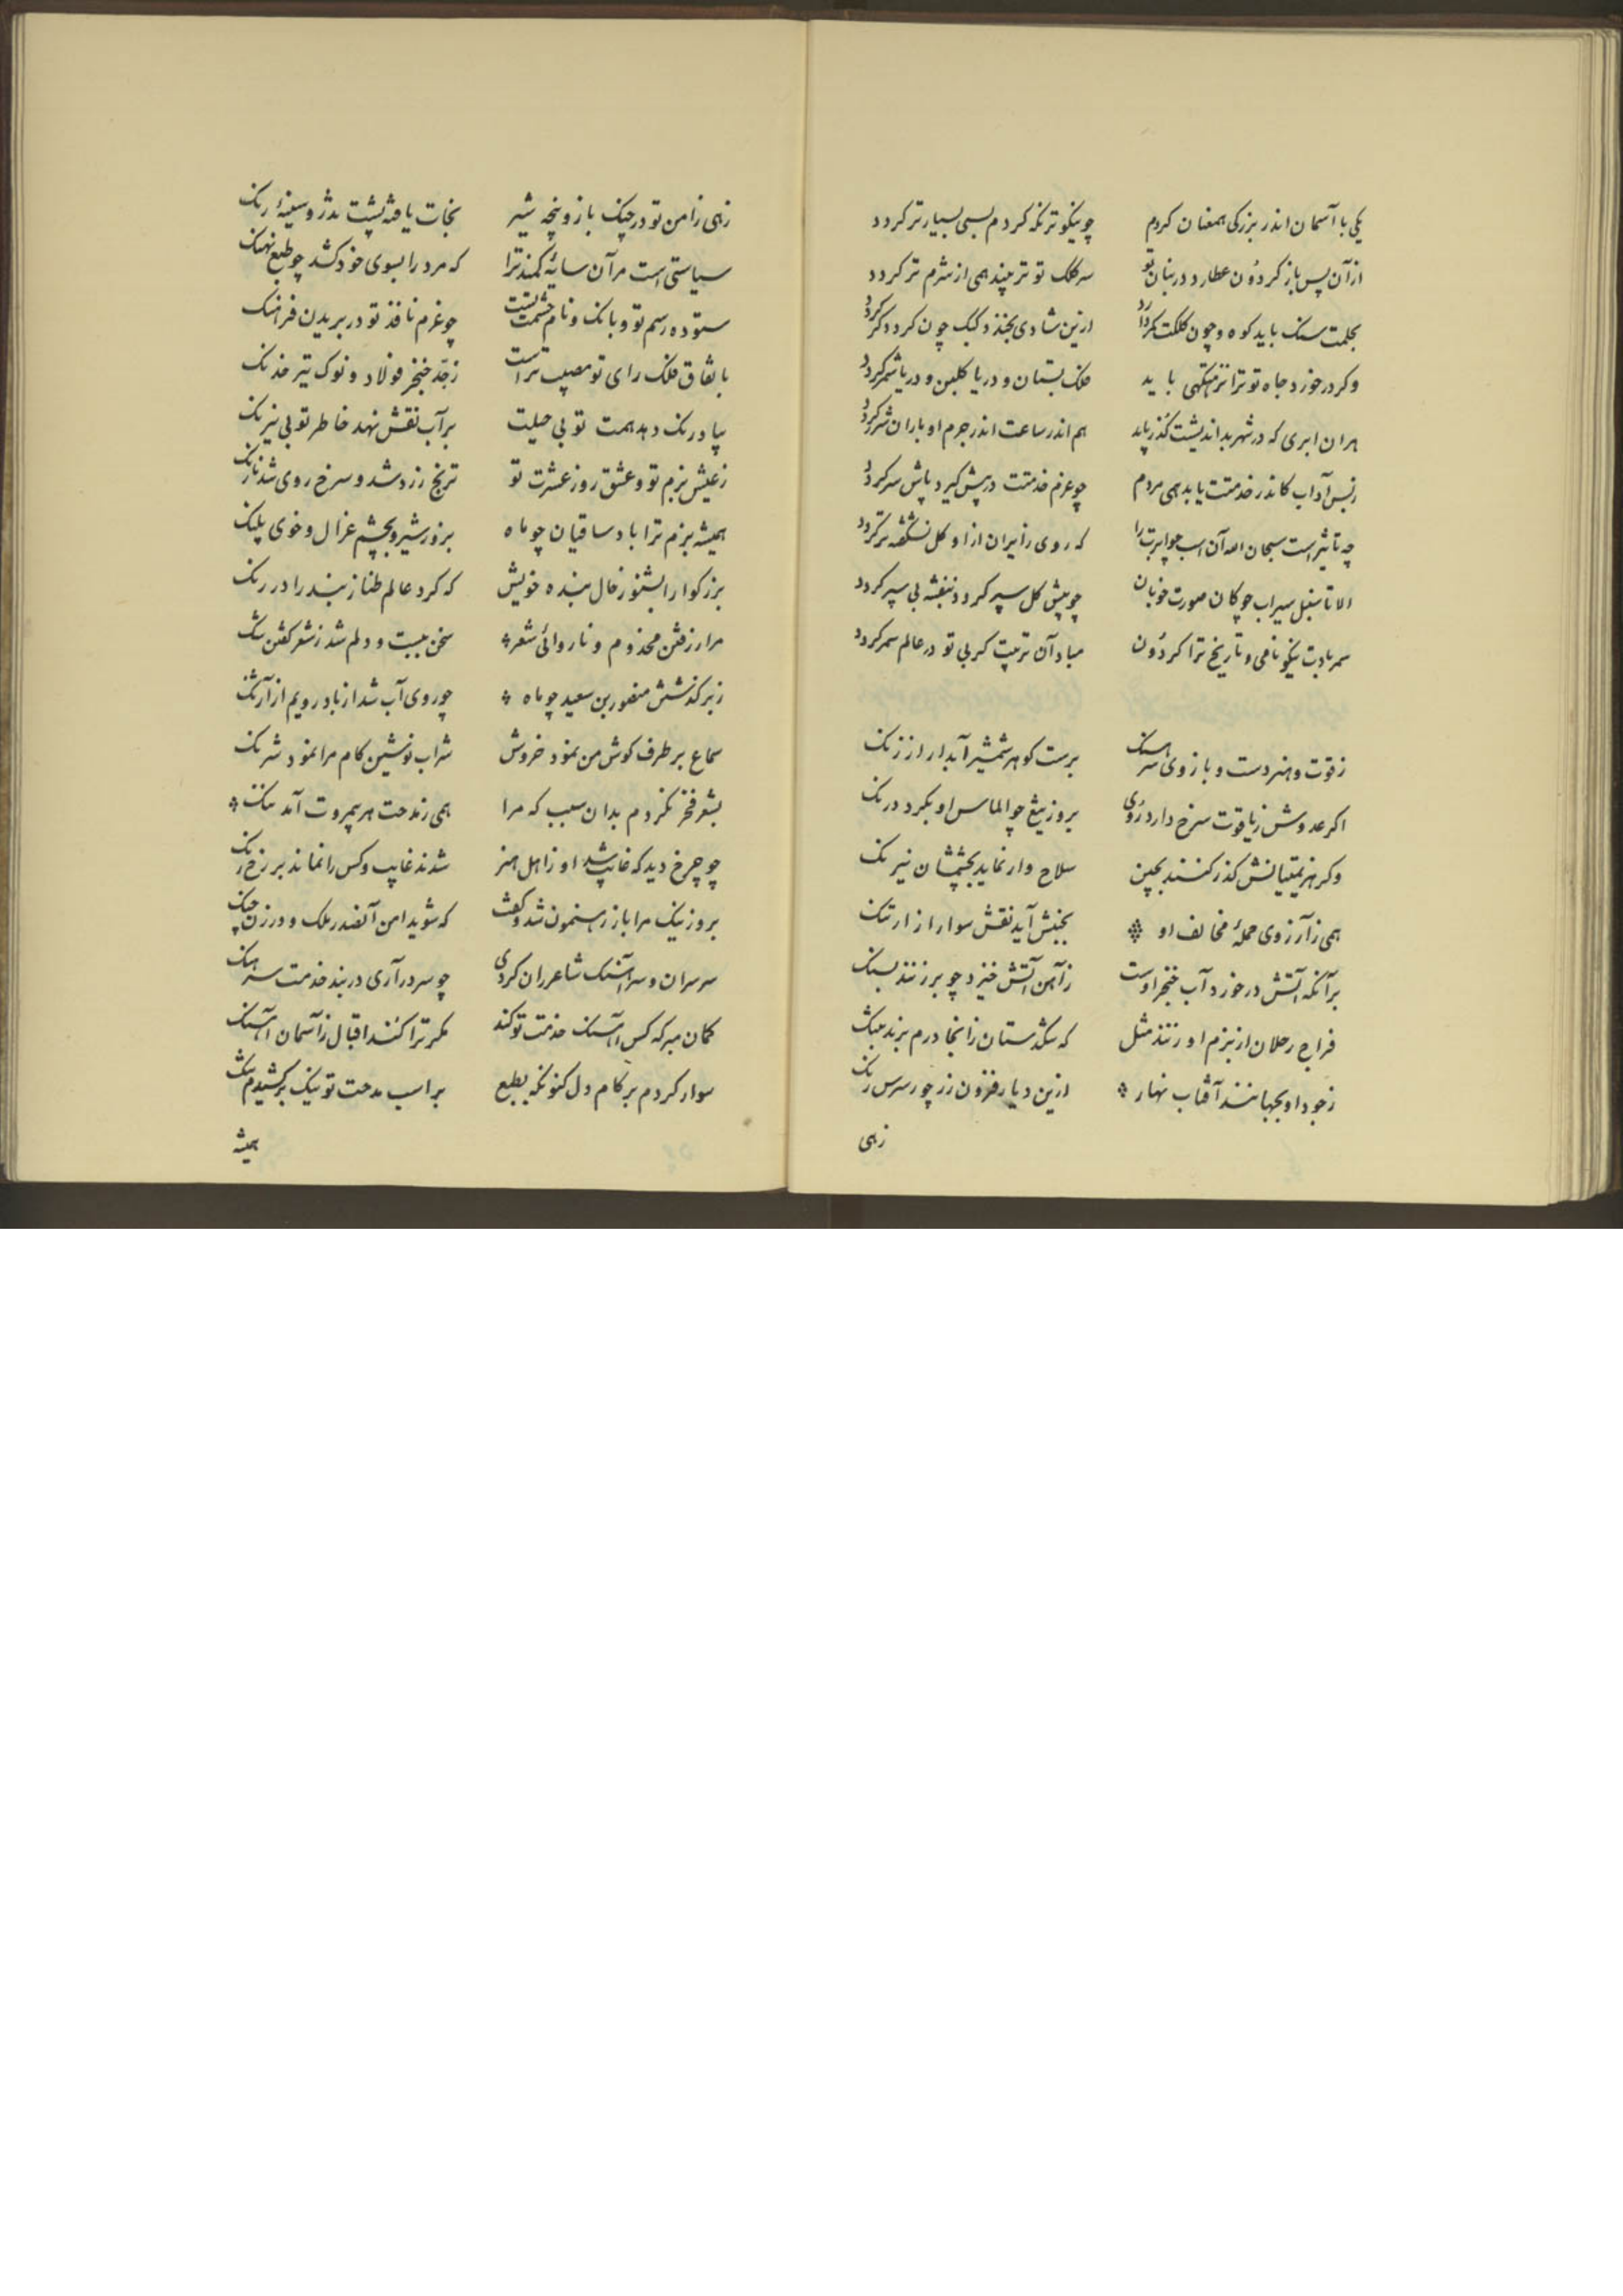 یکی با آسمان اندر بزرکی همعنان کردم چو نیکوتر نکه کردم بسی بسیارتر کردد
از آن پس باز کردون عطارد در بنان تو سر کلک تو تر بیند همی از شرم تر کردد
بحلمت سنک باید کوه و چون کلکت ازین شادی بخندد کبک چون کردد
وکر در خورد جاه تو ترا نزهتکهی باید فلک بستان و دریا کلبن و دریا شمر کردد
هر ان ابری که در شهر بد اندیشت کذر یابد هم اندر ساعت اندر جرم او باران شرر کردد
زبس آداب کاندر خدمتت یابد همی مردم چو عزم خدمتت در پیش کیرد پاش سر کردد
چه تاثیر است سبحان الله آن اسب جوابرت را که روی زایران از او کل نشکفته تر کردد
الا تا سنبل سیراب چوکان صورت خوبان چو پیش کل سپر کردد بنفشه بی سپر کردد
سمر بادت نیکو نامی و تاریخ ترا کردون مباد آن تربیت کز بی تو در عالم سمر کردد
ز قوت و هنر دست و بازوی سرهنک برست کوهر شمشیر آبدار از زنک
اکر عدوش ز یاقوت سرخ دارد روی بروز تیغ چو الماس او بکرد درنک
وکر هزیمتیانش کذر کنند بچین سلاح وار نماید بچشمشان نیرنک
همی ز آرزوی حملهٔ مخالف او بجنبش آید نقش سوار از ارتنک
بر آنکه آتش در خورد آب خنجر اوست ز آهن آتش خیزد چو برزنند بسنک
فراج رحلان از بزم او زنند مثل که تنکدستان زانجا درم برند بتنک
ز جود او بجهانند آفتاب نهار ازین دیار فزون زر چو ریک
زهی
زهی ز امن تو در چنک باز و پنجه شیر نجات یافته پشت تذرو و سینهٔ رنک
سیاستی است مر آن سایهٔ کمند ترا که مرد را بسوی خود کشد چو طبع نهنک
ستوده رسم تو و بانک و نام حشمت تست چو عزم نافذ تو در بریدن فرهنک
باتفاق فلک رای تو مصیب تر است ز حد خنجر فولاد و نوک تیر خدنک
بپا درنک دهد همت تو بی حیلت بر آب نقش نهد خاطر تو بی نیرنک
ز عیش بزم تو و عشق روز عشرت تو ترنج زرد شد و سرخ روی شد نارنک
همیشه بزم ترا باد ساقیان چو ماه بزور شیر و بچشم غزال و خوی پلنک
بزرکوارا بشنو ز حال بنده خویش که کرد عالم طناز بند را در رنک
مرا ز رفتن مخدوم و ناروائی شعر سخن ببست و دلم شد ز شعر کفتن تنک
ز برکذشتن منصور بن سعید چو ماه چو روی آب شد از باد رویم از آژنک
سماع بر طرف کوش من نمود خروش شراب نوشین کام مرا نمود شرنک
بشعر فخر نکردم بدان سبب که مرا همی ز مدحت هر بیمروت آمد ننک
چو چرخ دید که غایب شد او ز اهل هنر شدند غایب و کس را نماند بر رخ رنک
بروز نیک مرا باز رهنمون شد و کفت که شوید امن آنصدر ملک و در زن چنک
سر سران و سر آهنک شاعران کردی چو سر در آری در بند خدمت سرهنک
کمان مبر که کس آهنک خدمت تو کند مکر ترا کند اقبال ز آسمان آهنک
سوار کردم بر کام دل کنونکه بطبع بر اسب مدحت تو نیک برکشیدم تنک
همیشه